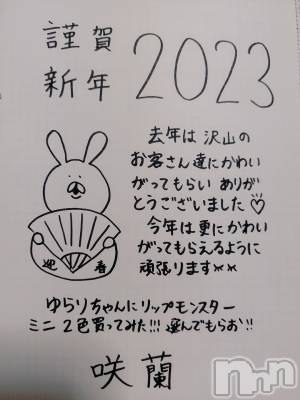 謹賀
新年
2023
去年は沢山の
お客さん達にかわい
がってもらい ありが
とうございました♡
今年は更にかわい
がってもらえるように
頑張ります
迎 春
ゆらりちゃんにリップモンスター
ミニ 2色買ってみた!!! 選んでもらお!!
咲蘭